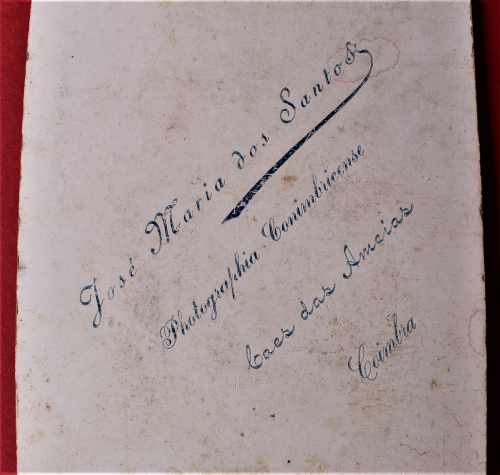 José Maria dos Santos
Photographia Conimbricense
Caes das Ameias
Coimbra